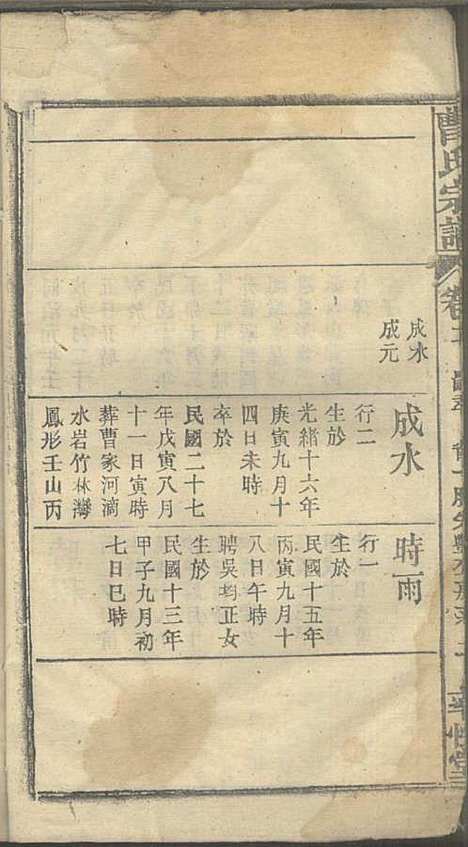 曹氏宗譜
成水
成元
成水
行二
生於
光緒十六年
庚寅九月十
四日未時
卒於
民國二十七
年戊寅八月
十一日寅時
葬曹家河滴
水岩竹林灣
鳳形壬山丙
時雨
行一
生於
民國十五年
丙寅九月十
八日午時
聘吳均正女
生於
民國十三年
甲子九月初
七日巳時